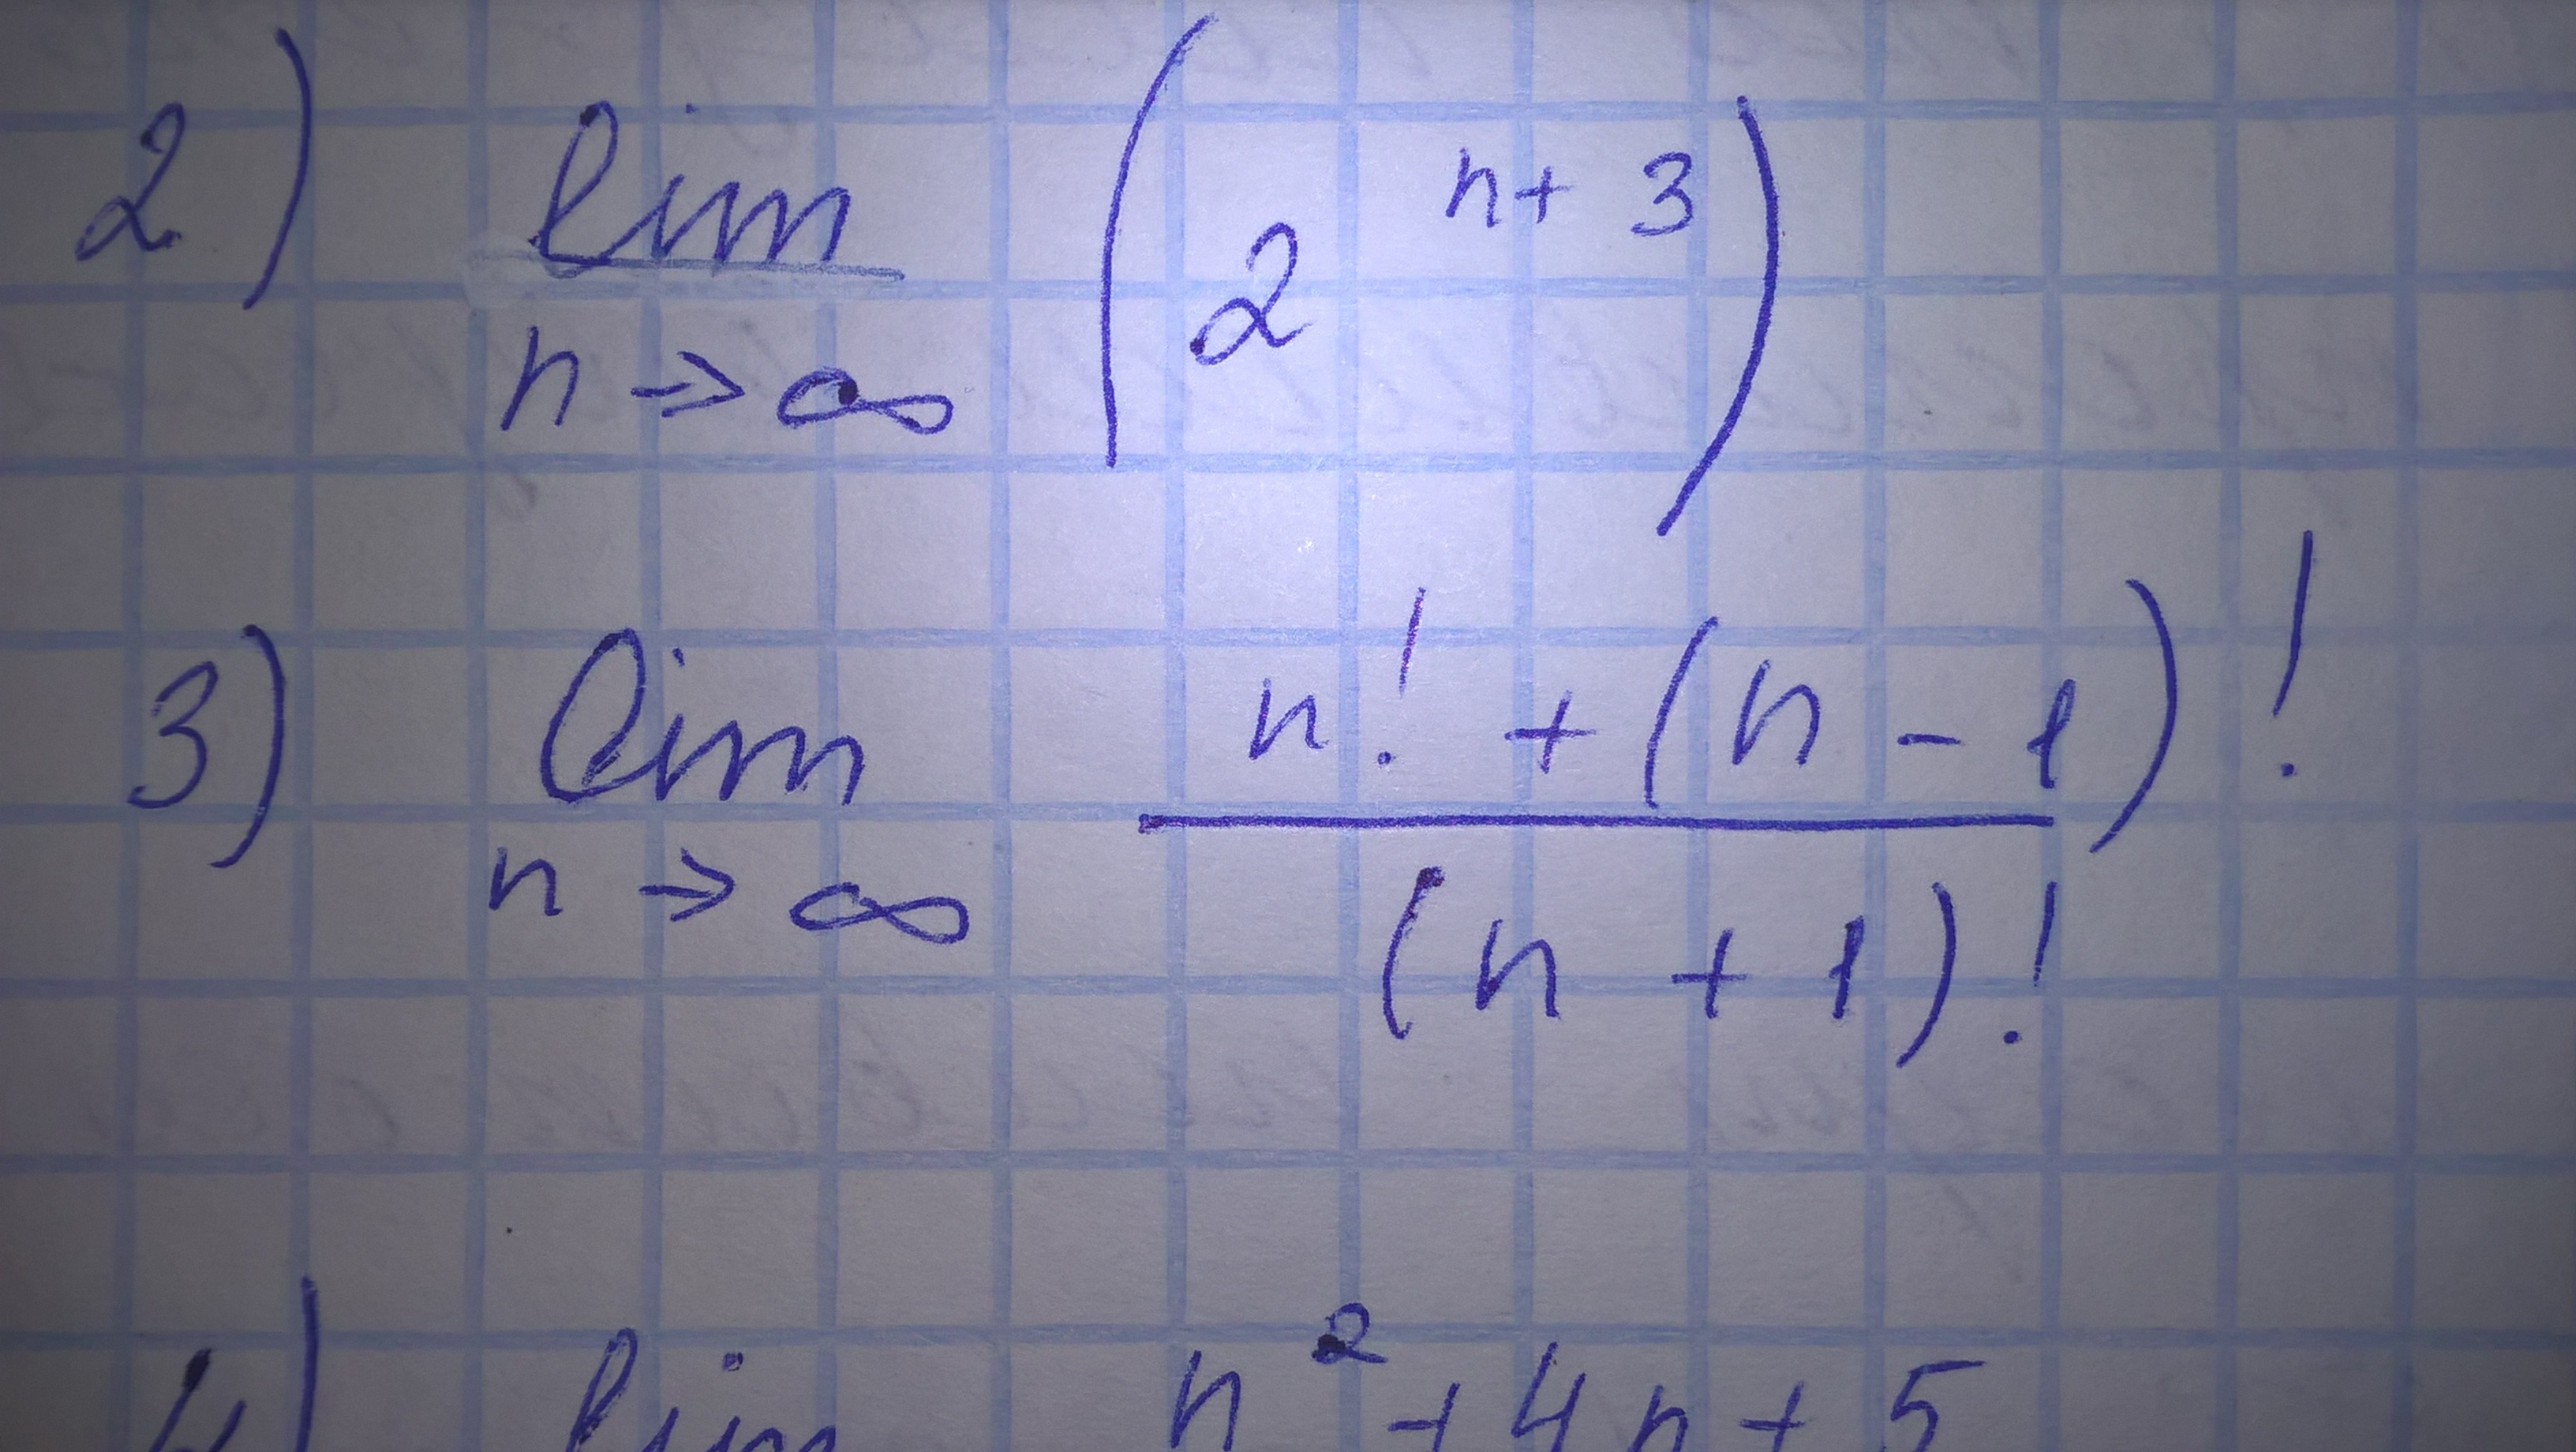 2) lim (2^{n+3})
n → ∞
3) lim n! + (n - 1)!
n → ∞ (n + 1)!
4) lim n² + 4n + 5